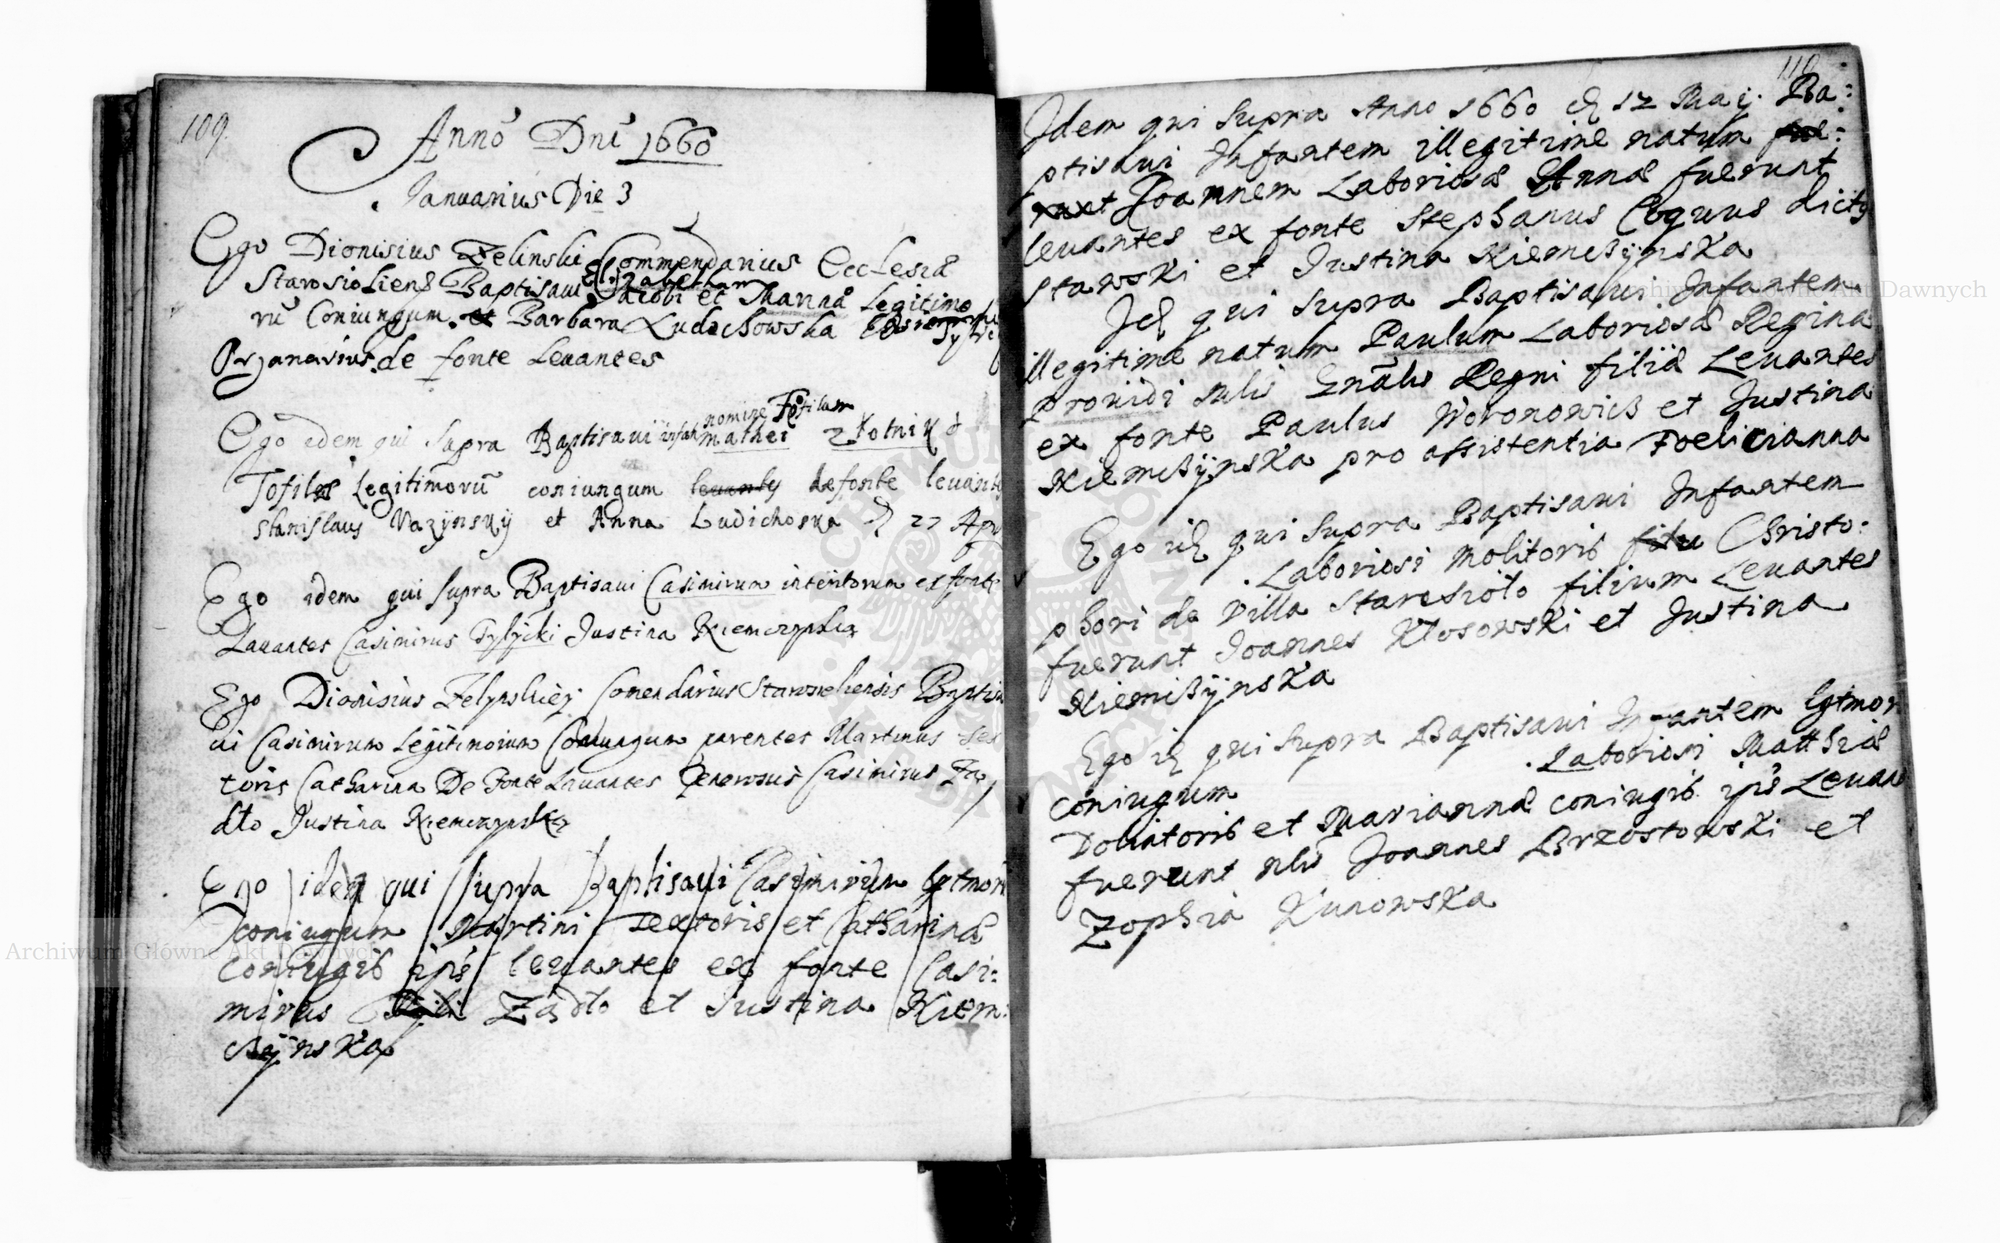 109.
Anno Dni 1660
Ianuarius Die 3
Ego Dionisius Zelinski Commendarius Ecclesiæ
Elizabetham
Starosieliens Baptisavi Jacobi et Mariannæ Legitimo
rũ Coniungum. et Barbara Ludichowska
Organarius de fonte Levantes
nomine Tofilam
Ego idem qui supra Baptisavi infantem mathei
Tofilæ Legitimorũ coniungum levantes de fonte levantes
Stanislaus et Anna Ludichoska 27 Apr
Ego idem qui supra Baptisavi Casimirum ex fonte
Lavantes Casimirus Justina Kiemczynska
Ego Dionisius Zelynskiey Comendarius Starosieliensis Baptisa
vi Casimirum Legitimorum Coniungum parentes Martinus Tex
toris Catharina De Fonte Lavantes Generosus Casimirus Za
dlo Justina Kiemczynska
Ego idem qui supra Baptisavi Casimirum Lgtmor
coniugum Martini Textoris et Catharinæ
Coniugis ips levantes ex fonte Casi:
mirus Zadlo et Iustina Kiem:
czÿnska
110
Idem qui supra Anno 1660 d 12 Maij. Ba:
ptisavi Infantem illegitime natum
Joannem Laboriosæ Annæ fuerunt
levantes ex fonte Stephanus Coquus dictus
Stawski et Iustina Kiemczÿnska
Id qui supra Baptisavi Infantem
illegitime natum Paulum Laboriosæ Regina
providi Regni filiæ Levantes
ex fonte Paulus Woronowicz et Justina
Kiemczÿnska pro assistentia Foelicianna
Ego id qui supra Baptisavi Infantem
Laboriosi Molitoris filii Christo:
phori de villa Starosiolo filium Levantes
fuerunt Joannes Klosowski et Justina
Kiemczÿnska
Ego id qui supra Baptisavi Infantem lgtmor
coniugum .Laboriosi Matthiæ
Doliatoris et Mariannæ coniugis ips Levan
fuerunt Nlis Joannes Brzostowski et
Zophia Kunowska
Archiwum Główne Akt Dawnych
Archiwum Główne Akt Dawnych